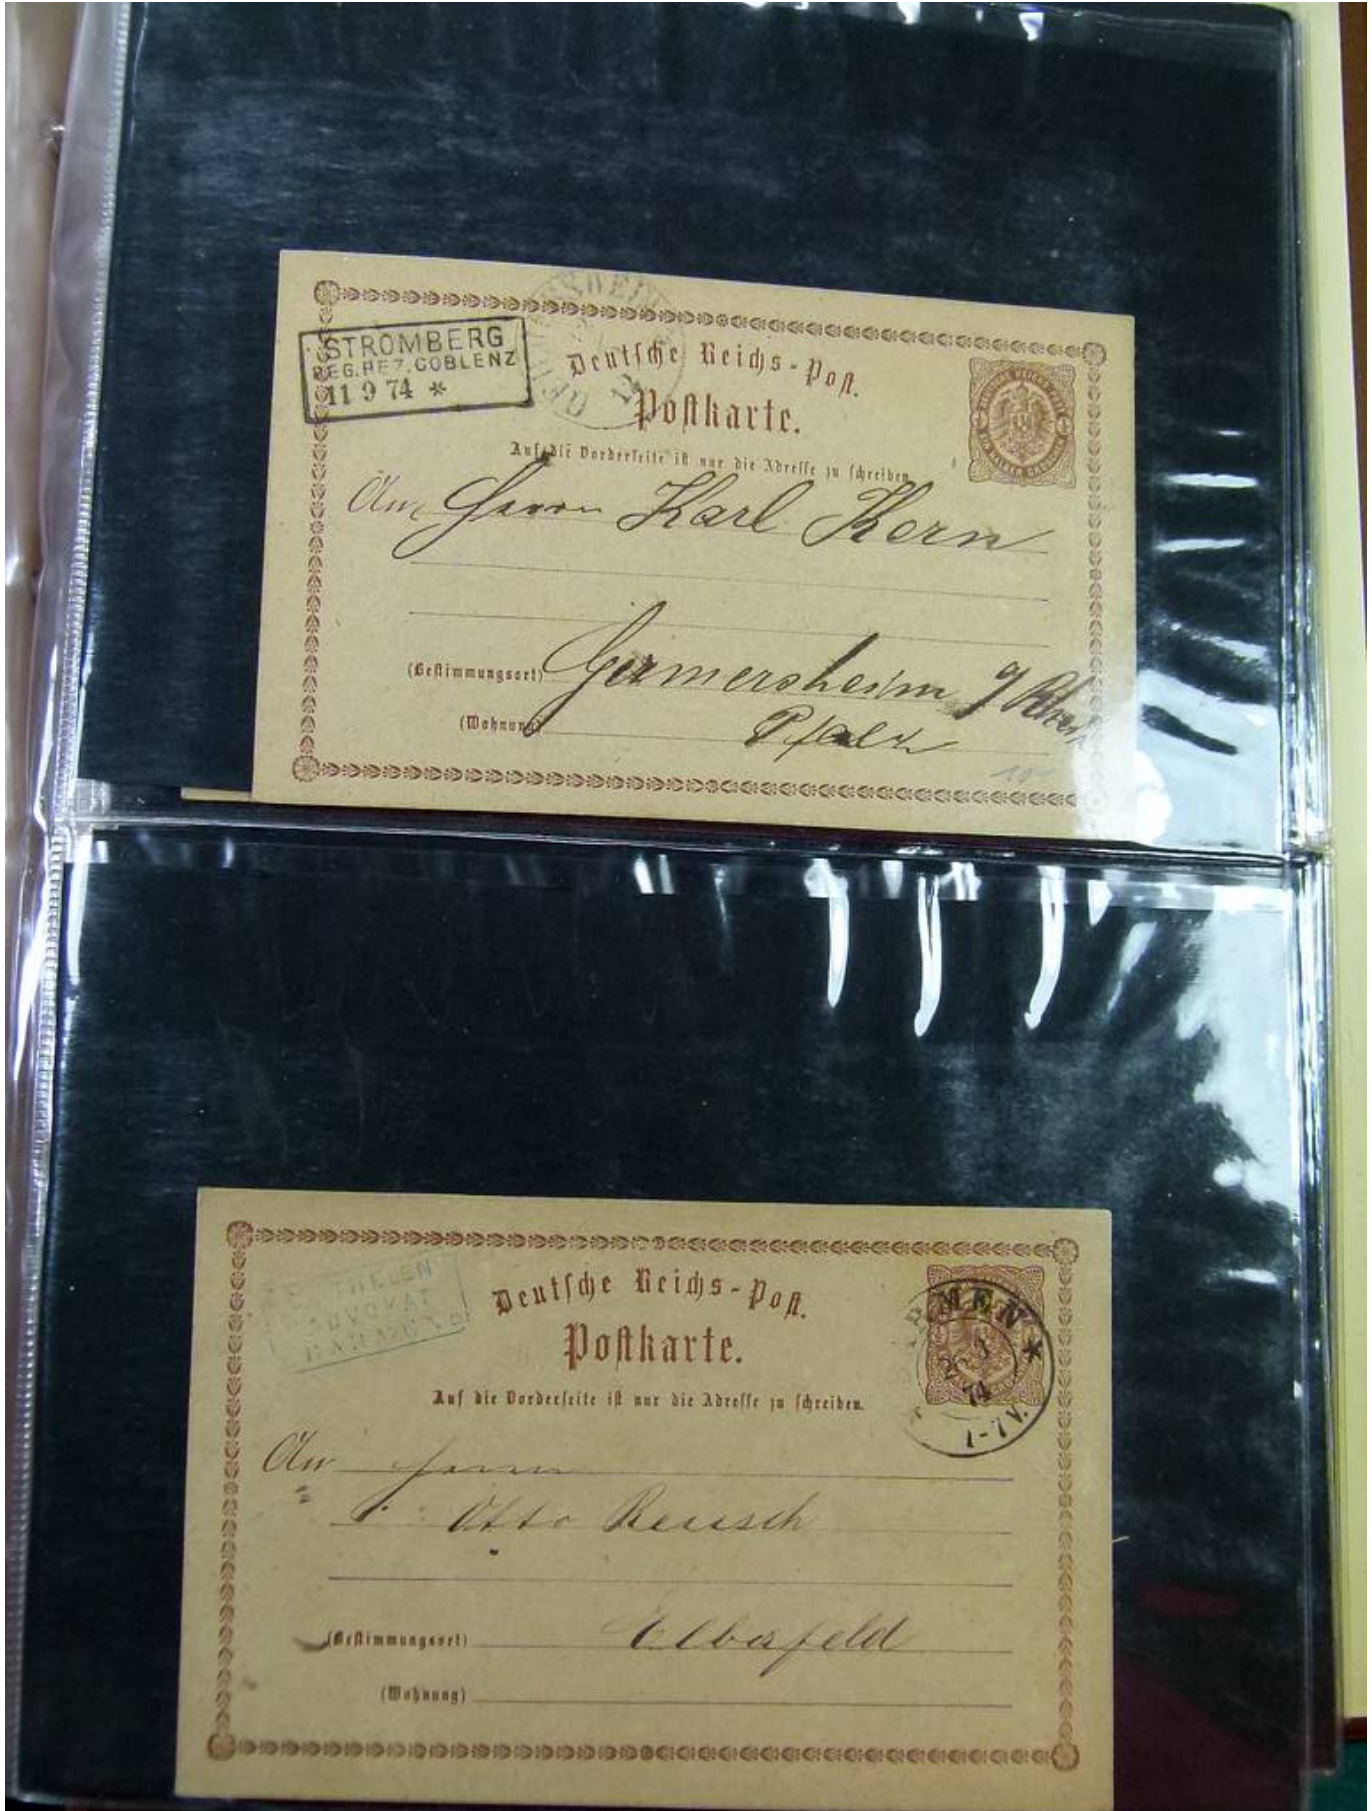 STROMBERG
REG.BEZ.COBLENZ
11 9 74 *
GERMERSHEIM
12
Deutsche Reichs-Post.
Postkarte.
Auf die Vorderseite ist nur die Adresse zu schreiben.
An Herrn Karl Kern
(Bestimmungsort) Germersheim a/Rhein
(Wohnung) Pfalz
10
ADVOVAT
Deutsche Reichs-Post.
Postkarte.
BARMEN *
74
1-7 V.
Auf die Vorderseite ist nur die Adresse zu schreiben.
An Herrn
Otto Reusch
(Bestimmungsort) Elberfeld
(Wohnung)